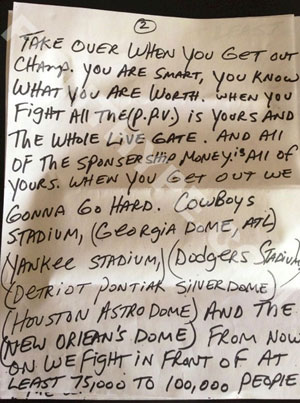 2
TAKE OVER WHEN YOU GET OUT
CHAMP. YOU ARE SMART, YOU KNOW
WHAT YOU ARE WORTH. WHEN YOU
FIGHT ALL THE (P.P.V.) IS YOURS AND
THE WHOLE LIVE GATE. AND All
OF THE SPONSERSHIP MONEY.is All of
YOURS. WHEN YOU GET OUT WE
GONNA GO HARD. COWBOYS
STADIUM, (GEORGIA DOME, ATL)
YANKEE STADIUM,) (DODGERS STADIUM
(DETRIOT PONTIAK SILVERDOME)
(HOUSTON ASTRODOME) AND THE
(NEW ORlEAN'S DOME) FROM NOW
ON WE FIGHT IN FRONT OF AT
LEAST 75,000 TO 100,000 PEOPLE